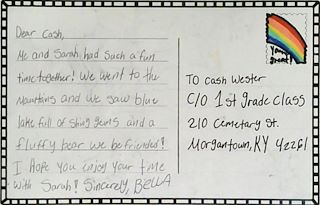 Dear Cash,
Me and Sarah had such a fun
time together! We went to the
Mauntains and we saw blue
lake full of shing gems and a
fluffy bear we be friended!
I Hope you enjoy your time
with Sarah! Sincerely, BELLA
You're
great!
TO Cash Wester
C/O 1st grade class
210 Cemetary St.
Morgantown, KY 42261